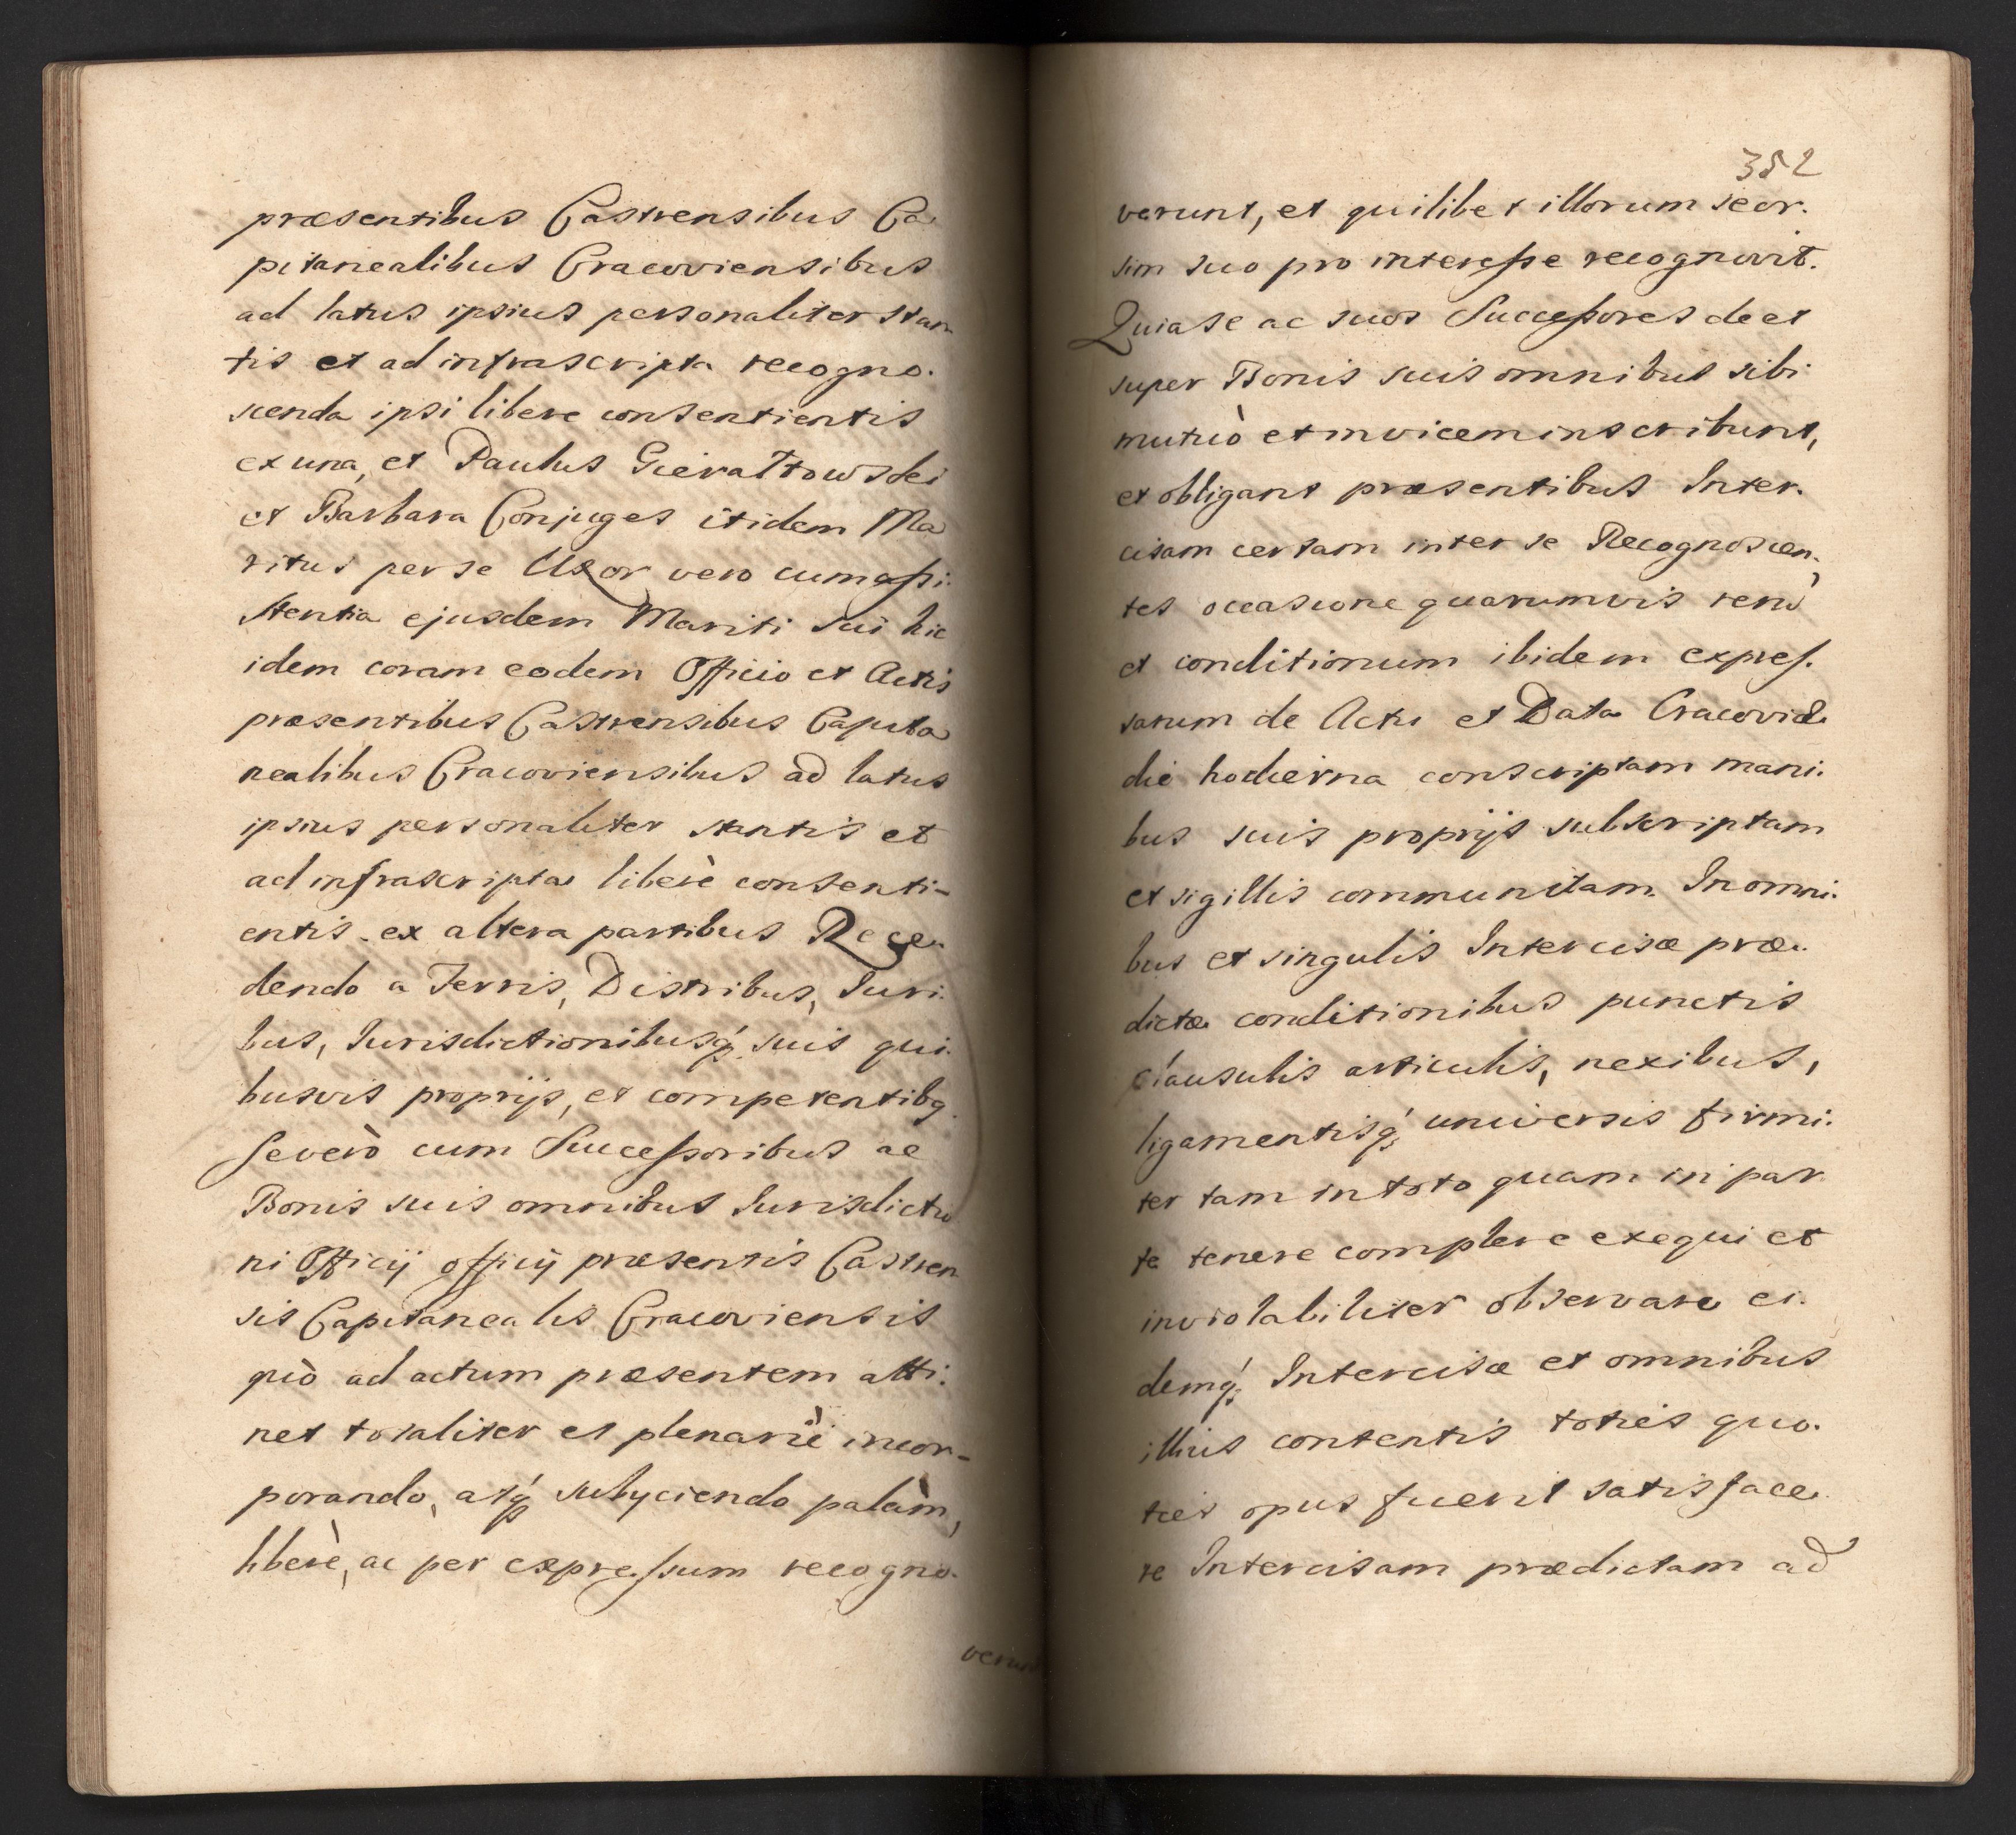 præsentibus Castrensibus Ca-
pitanealibus Cracoviensibus
ad latus ipsius personaliter stan
tis et ad infrascripta recogno-
scenda ipsi libere consentientis
ex una, et Paulus Gierałtowski
et Barbara Conjuges itidem Ma
ritus per se Uxor vero cum assi-
stentia ejusdem Mariti sui hic
idem coram eodem Officio et Actis
præsentibus Castrensibus Capita
nealibus Cracoviensibus ad latus
ipsius personaliter stantis et
ad infrascripta liberè consenti-
entis ex altera partibus Rece-
dendo a Terris, Distribus, Juri-
bus, Jurisdictionibusq́ꝫ suis qui-
busvis proprijs, et competentibꝫ
Severò cum Successoribus ac
Bonis suis omnibus Jurisdictio
ni Officij officij præsentis Castren
sis Capitanealis Cracoviensis
quò ad actum præsentem atti-
net totaliter et plenariè incor-
porando, atq́ꝫ subyciendo palàm,
liberè, ac per expressum recogno-
verunt
352
verunt, et quilibet illorum seor-
sim suo pro interesse recognovit.
Quia se ac suos Successores de et
super Bonis suis omnibus sibi
mutuò et invicem inscribunt,
et obligant præsentibus Inter-
cisam certam inter se Recognoscen-
tes occasione quarumvis rerū
et conditionum ibidem expres-
sarum de Actu et Data Cracoviæ
die hodierna conscriptam mani-
bus suis proprijs subscriptam
et sigillis communitam. In omni-
bus et singulis Intercisæ præ-
dictæ conditionibus punctis
clausulis articulis, nexibus,
ligamentisq́ꝫ universis firmi-
ter tam in toto quam in par
te tenere complere exequi et
inviolabiliter observare ei-
demq́ꝫ Intercisæ et omnibus
illius contentis toties quo-
ties opus fuerit satisface-
re Intercisam prædictam ad